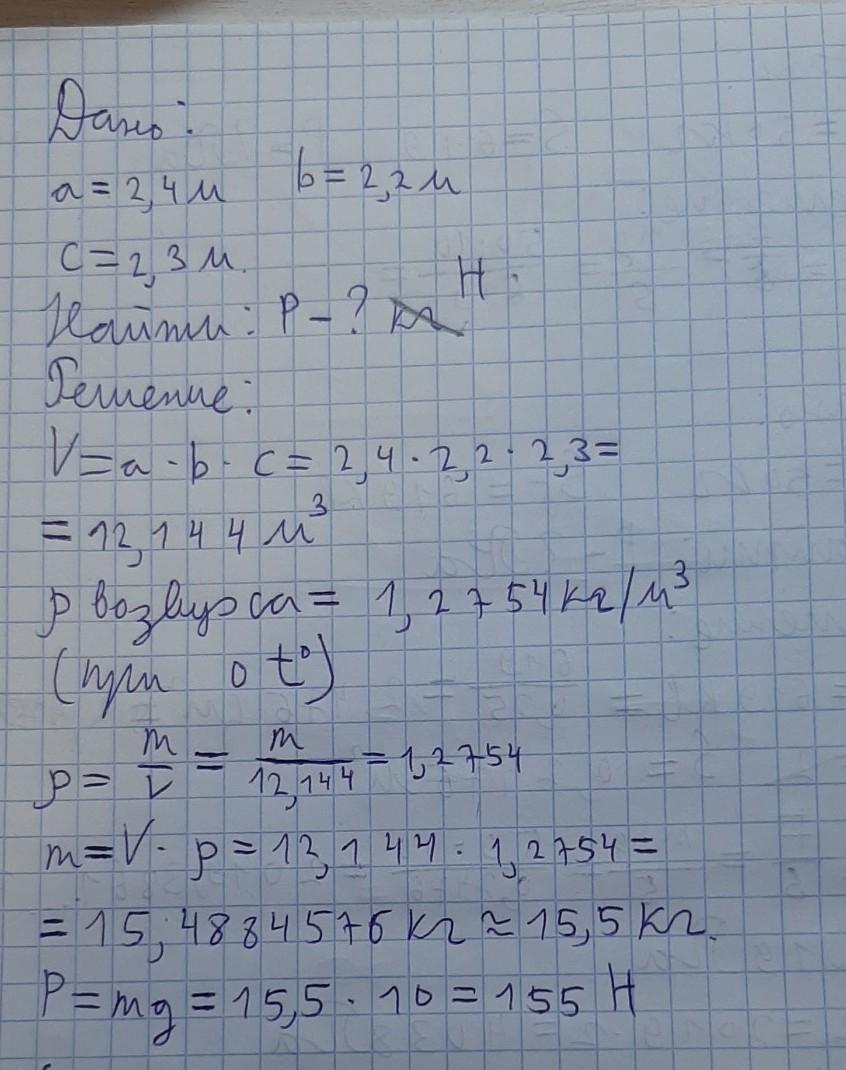 Дано:
a = 2,4 м b = 2,2 м
c = 2,3 м.
Найти: P – ? кг Н.
Решение:
V = a · b · c = 2,4 · 2,2 · 2,3 =
= 12,144 м³
ρ воздуха = 1,2754 кг/м³
(при 0 t°)
ρ = m/V = m/12,144 = 1,2754
m = V · ρ = 12,144 · 1,2754 =
= 15,4884576 кг ≈ 15,5 кг.
P = mg = 15,5 · 10 = 155 Н